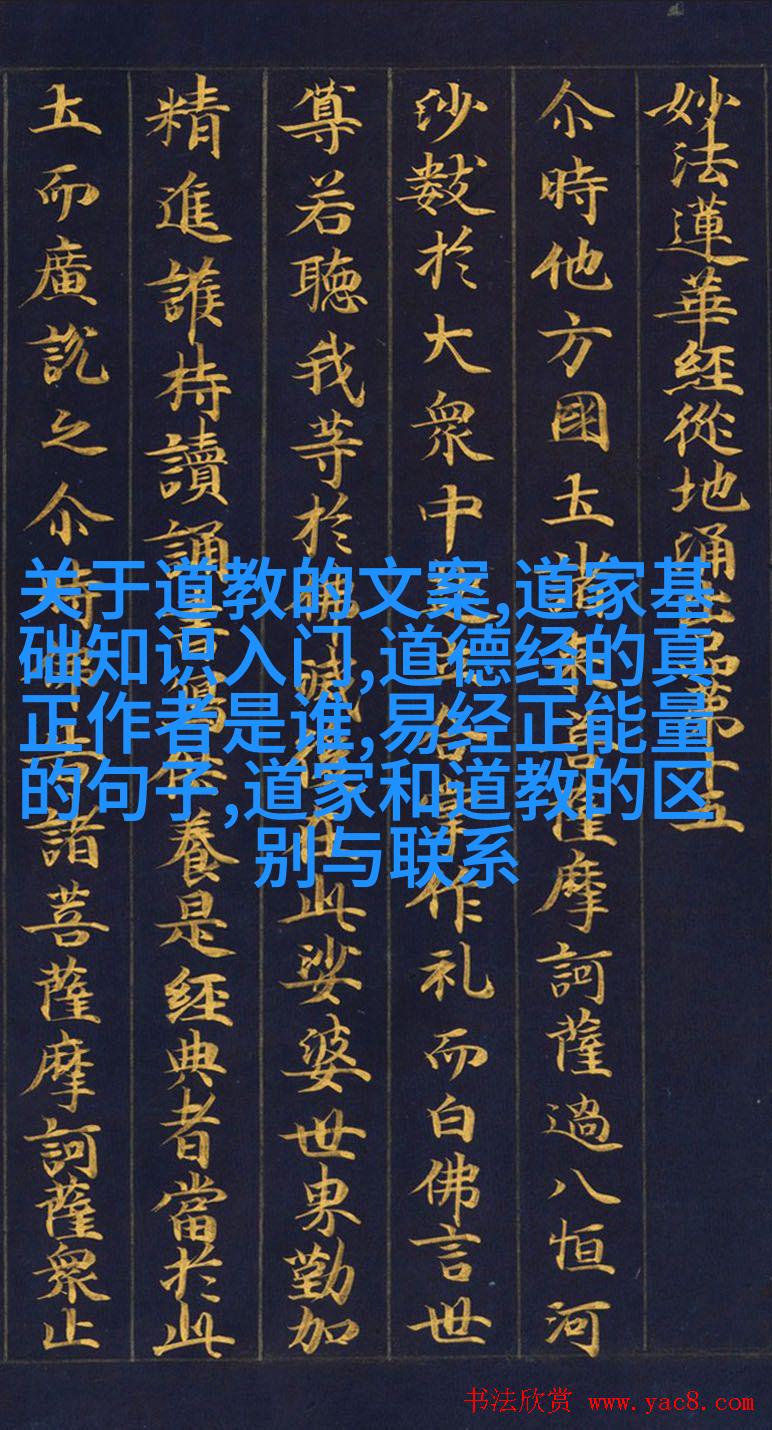 妙法蓮華經從地涌出品第十五
尒時他方國土諸來菩薩摩訶薩過八恒河
沙數於大衆中起立合掌作礼而白佛言世
尊若聽我等於佛滅後在此娑婆世界勤加
精進護持讀誦書寫供養是經典者當於此
土而廣說之尒時佛告諸菩薩摩訶薩衆止
关于道教的文案,道家基
础知识入门,道德经的真
正作者是谁,易经正能量
的句子,道家和道教的区
别与联系
书法欣赏 www.yac8.com